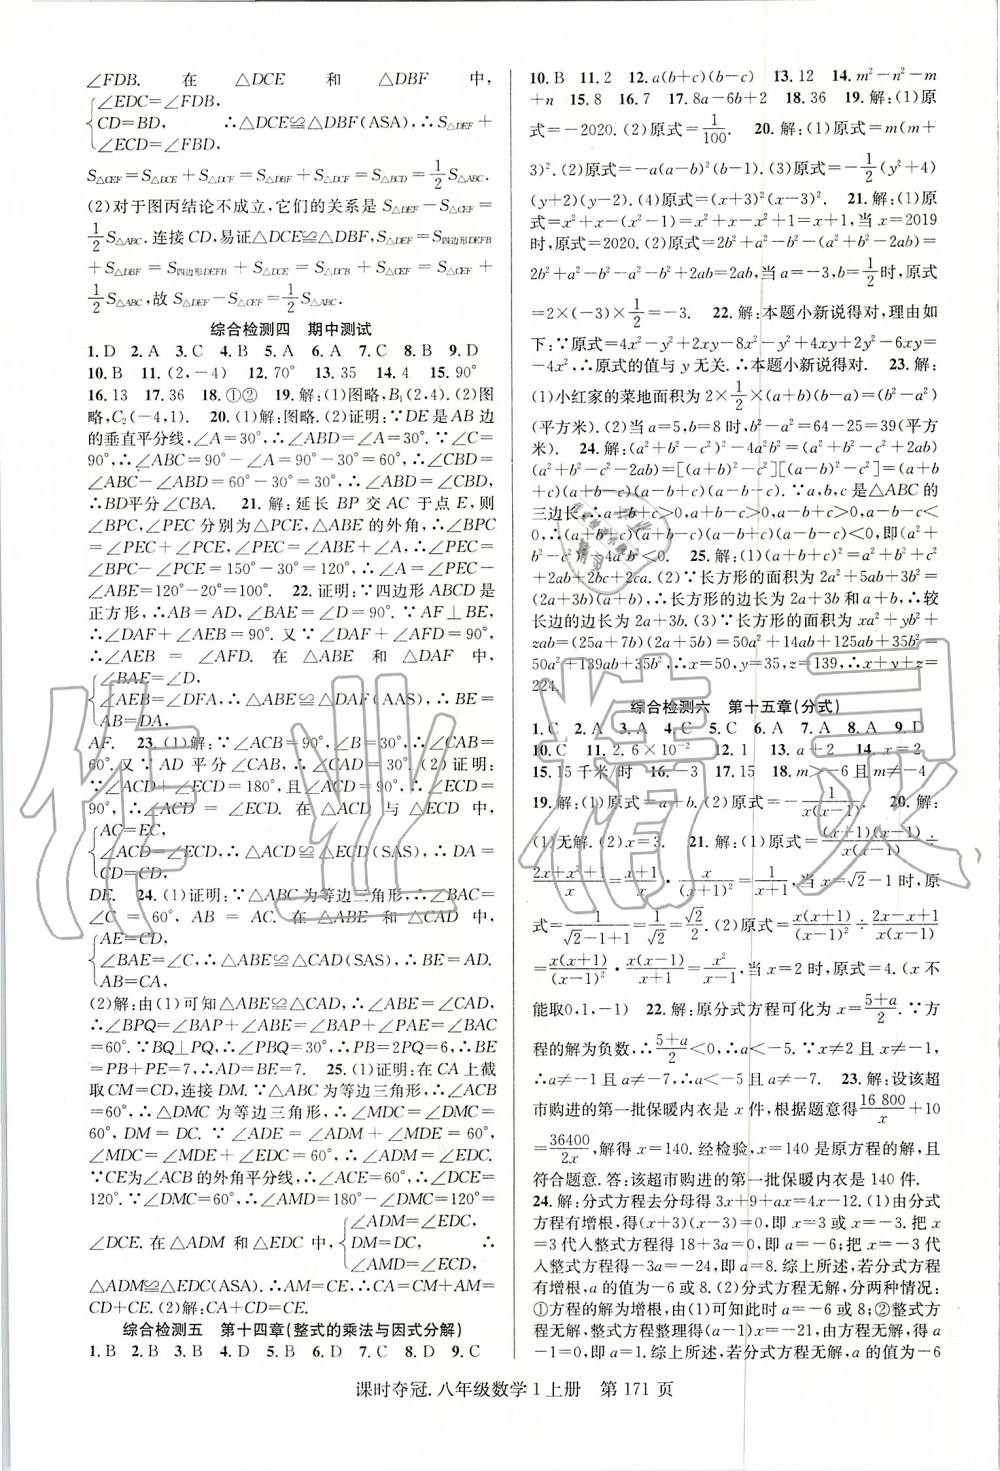 ∠FDB. 在 △DCE 和 △DBF 中,
{∠EDC=∠FDB,
CD=BD, ∴△DCE≌△DBF(ASA),∴S△DEF+
∠ECD=∠FBD,
S△CEF=S△DCE+S△DCF=S△DBF+S△DCF=S△BCD=1/2 S△ABC.
(2)对于图丙结论不成立,它们的关系是 S△DEF-S△CEF=
1/2 S△ABC. 连接 CD,易证△DCE≌△DBF,∴S△DEF=S四边形DEFB
+S△DBF=S四边形DEFB+S△DCE=S△DCB+S△CEF=1/2 S△ABC+S△CEF
+1/2 S△ABC,故 S△DEF-S△CEF=1/2 S△ABC.
综合检测四 期中测试
1. D 2. A 3. C 4. B 5. A 6. A 7. C 8. B 9. D
10. B 11. (2,-4) 12. 70° 13. 35 14. 4 15. 90°
16. 13 17. 36 18. ①② 19. 解:(1)图略,B₁(2,4). (2)图
略,C₂(-4,1). 20. (1)解:图略. (2)证明:∵DE 是 AB 边
的垂直平分线,∠A=30°,∴∠ABD=∠A=30°. ∵∠C=
90°,∴∠ABC=90°-∠A=90°-30°=60°,∴∠CBD=
∠ABC-∠ABD=60°-30°=30°,∴∠ABD=∠CBD,
∴BD平分∠CBA. 21. 解:延长 BP 交 AC 于点 E,则
∠BPC,∠PEC 分别为△PCE,△ABE 的外角,∴∠BPC
=∠PEC+∠PCE,∠PEC=∠ABE+∠A,∴∠PEC=
∠BPC-∠PCE=150°-30°=120°. ∴∠A=∠PEC-
∠ABE=120°-20°=100°. 22. 证明:∵四边形 ABCD 是
正方形,∴AB=AD,∠BAE=∠D=90°. ∵AF⊥BE,
∴∠FAE+∠AEB=90°. 又∵∠DAF+∠AFD=90°,
∴∠AEB=∠AFD. 在△BAE 和△ADF 中,
{∠BAE=∠D,
∠AEB=∠DFA,∴△BAE≌△ADF(AAS),∴BE=
AB=DA,
AF. 23. (1)解:∵∠ACB=90°,∠B=30°,∴∠CAB=
60°. 又∵AD 平分∠CAB,∴∠CAD=30°. (2)证明:
∵∠ACD+∠ECD=180°,且∠ACD=90°,∴∠ECD=
90°,∴∠ACD=∠ECD. 在△ACD 与△ECD 中,
{AC=EC,
∠ACD=∠ECD,∴△ACD≌△ECD(SAS),∴DA=
CD=CD,
DE. 24. (1)证明:∵△ABC 为等边三角形,∴∠BAC=
∠C=60°,AB=AC. 在△ABE 和△CAD 中,
{AE=CD,
∠BAE=∠C,∴△ABE≌△CAD(SAS),∴BE=AD.
AB=CA,
(2)解:由(1)可知△ABE≌△CAD,∴∠ABE=∠CAD,
∴∠BPQ=∠BAP+∠ABE=∠BAP+∠PAE=∠BAC
=60°. ∵BQ⊥PQ,∴∠PBQ=30°,∴PB=2PQ=6,∴BE
=PB+PE=7,∴AD=BE=7. 25. (1)证明:在 CA 上截
取 CM=CD,连接 DM. ∵△ABC 为等边三角形,∴∠ACB
=60°,∴△DMC 为等边三角形,∴∠MDC=∠DMC=
60°,DM=DC. ∵∠ADE=∠ADM+∠MDE=60°,
∠MDC=∠MDE+∠EDC=60°,∴∠ADM=∠EDC.
∵CE为∠ACB的外角平分线,∴∠ACE=60°=∠DCE=
120°. ∵∠DMC=60°,∴∠AMD=180°-∠DMC=120°=
∠DCE. 在△ADM 和△EDC 中,{∠ADM=∠EDC,
DM=DC, ∴
∠AMD=∠ECD,
△ADM≌△EDC(ASA). ∴AM=CE,∴CA=CM+AM=
CD+CE. (2)解:CA=CD+CE.
综合检测五 第十四章(整式的乘法与因式分解)
1. B 2. B 3. A 4. D 5. D 6. C 7. D 8. D 9. C
10. B 11. 2 12. a(b+c)(b-c) 13. 12 14. m²-n²-m
+n 15. 8 16. 7 17. 8a-6b+2 18. 36 19. 解:(1)原
式=-2020. (2)原式=1/100. 20. 解:(1)原式=m(m+
3)². (2)原式=-a(a-b)²(b-1). (3)原式=-1/2(y²+4)
(y+2)(y-2). (4)原式=(x+3)²(x-3)². 21. 解:(1)
原式=x²+x-(x²-1)=x²+x-x²+1=x+1,当 x=2019
时,原式=2020. (2)原式=2b²+a²-b²-(a²+b²-2ab)=
2b²+a²-b²-a²-b²+2ab=2ab,当 a=-3,b=1/2时,原式
=2×(-3)×1/2=-3. 22. 解:本题小新说得对,理由如
下:∵原式=4x²-y²+2xy-8x²-y²+4xy+2y²-6xy=
-4x²,∴原式的值与 y 无关. ∴本题小新说得对. 23. 解:
(1)小红家的菜地面积为 2×1/2×(a+b)(b-a)=(b²-a²)
(平方米). (2)当 a=5,b=8 时,b²-a²=64-25=39(平方
米). 24. 解:(a²+b²-c²)²-4a²b²=(a²+b²-c²+2ab)
(a²+b²-c²-2ab)=[(a+b)²-c²][(a-b)²-c²]=(a+b
+c)(a+b-c)(a-b+c)(a-b-c). ∵a,b,c 是△ABC 的
三边长,∴a+b+c>0,a+b-c>0,a-b+c>0,a-b-c<
0,∴(a+b+c)(a+b-c)(a-b+c)(a-b-c)<0,即(a²+
b²-c²)²-4a²b²<0. 25. 解:(1)(a+b+c)²=a²+b²+c²+
2ab+2bc+2ca. (2)∵长方形的面积为 2a²+5ab+3b²=
(2a+3b)(a+b),∴长方形的边长为 2a+3b 和 a+b,∴较
长边的边长为 2a+3b. (3)∵长方形的面积为 xa²+yb²+
zab=(25a+7b)(2a+5b)=50a²+14ab+125ab+35b²=
50a²+139ab+35b²,∴x=50,y=35,z=139,∴x+y+z=
224.
综合检测六 第十五章(分式)
1. C 2. A 3. A 4. C 5. C 6. A 7. A 8. A 9. D
10. C 11. 2.6×10⁻² 12. 1 13. a+2 14. x=2
15. 15 千米/时 16. -3 17. 15 18. m>-6 且 m≠-4
19. 解:(1)原式=a+b. (2)原式=-1/(x(x-1)). 20. 解:
(1)无解. (2)x=3. 21. 解:(1)原式=(x+1)(x-1)/(x(x-1))÷
(2x+x²+1)/x=(x+1)/x·x/(x+1)²=1/(x+1),当 x=√2-1 时,原
式=1/(√2-1+1)=1/√2=√2/2. (2)原式=x(x+1)/(x-1)²÷(2x-x+1)/(x(x-1))
=x(x+1)/(x-1)²·x(x-1)/(x+1)=x²/(x-1),当 x=2 时,原式=4. (x 不
能取0,1,-1) 22. 解:原分式方程可化为 x=(5+a)/2. ∵方
程的解为负数,∴(5+a)/2<0,∴a<-5. ∵x≠2 且 x≠-1,
∴a≠-1 且 a≠-7,∴a<-5 且 a≠-7. 23. 解:设该超
市购进的第一批保暖内衣是 x 件,根据题意得16 800/x+10
=36400/2x,解得 x=140. 经检验,x=140 是原方程的解,且
符合题意. 答:该超市购进的第一批保暖内衣是 140 件.
24. 解:分式方程去分母得 3x+9+ax=4x-12. (1)由分式
方程有增根,得(x+3)(x-3)=0,即 x=3 或 x=-3. 把 x
=3 代入整式方程得 18+3a=0,解得 a=-6;把 x=-3 代
入整式方程得-3a=-24,解得 a=8. 综上所述,若分式方程
有增根,a 的值为-6 或 8. (2)分式方程无解,分两种情况:
①方程的解为增根,由(1)可知此时 a=-6 或 8;②整式方
程无解,整式方程整理得(a-1)x=-21,由方程无解,得 a
-1=0. 解得 a=1. 综上所述,若方程无解,a 的值为-6
或 8 或 1.
课时夺冠. 八年级数学 1 上册 第 171 页
作业精灵